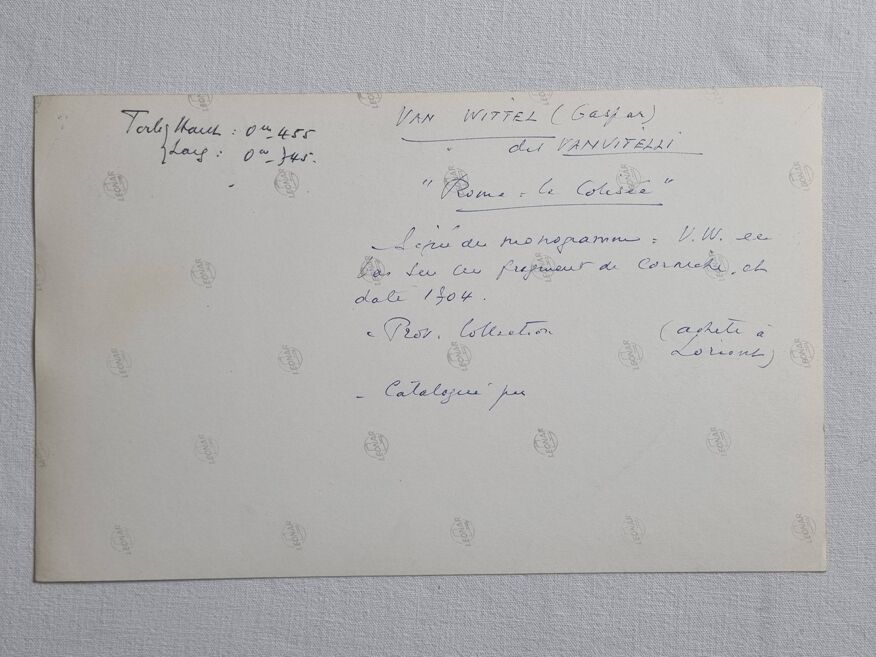 Toile { Haut : 0m 455
{ Larg : 0m 745.
VAN WITTEL (Gaspar)
dit VANVITELLI
"Rome : le Colisée"
- Signé du monogramme : V.W. en
bas sur un fragment de corniche, et
daté 1704.
- Prov. Collection (acheté à
Lorient)
- Catalogué par
LEONAR